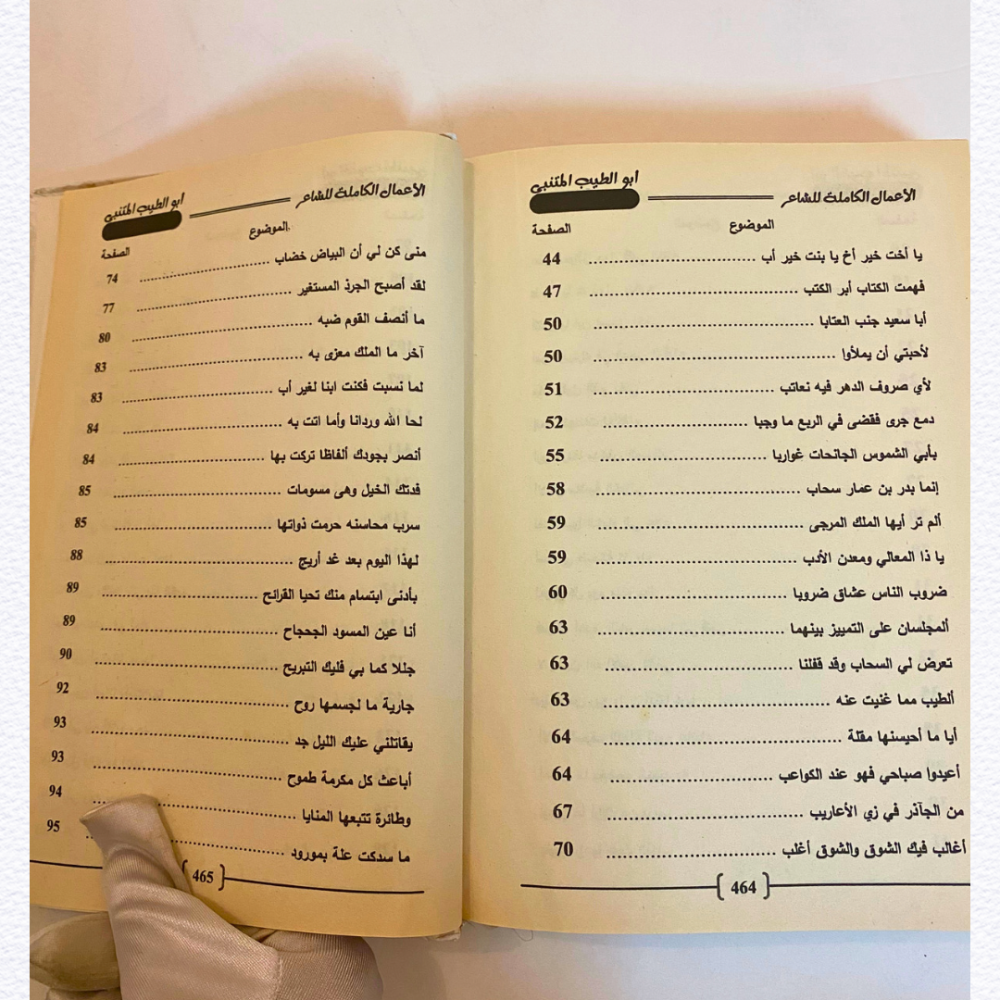 الأعمال الكاملة للشاعر أبو الطيب المتنبي
الموضوع الصفحة
يا أخت خير أخ يا بنت خير أب ........ 44
فهمت الكتاب أبر الكتب ........ 47
أبا سعيد جنب العتابا ........ 50
لأحبتي أن يملأوا ........ 50
لأي صروف الدهر فيه نعاتب ........ 51
دمع جرى فقضى في الربع ما وجبا ........ 52
بأبي الشموس الجانحات غواربا ........ 55
إنما بدر بن عمار سحاب ........ 58
ألم تر أيها الملك المرجى ........ 59
يا ذا المعالي ومعدن الأدب ........ 59
ضروب الناس عشاق ضروبا ........ 60
ألمجلسان على التمييز بينهما ........ 63
تعرض لي السحاب وقد قفلنا ........ 63
ألطيب مما غنيت عنه ........ 63
أيا ما أحيسنها مقلة ........ 64
أعيدوا صباحي فهو عند الكواعب ........ 64
من الجآذر في زي الأعاريب ........ 67
أغالب فيك الشوق والشوق أغلب ........ 70
464
الأعمال الكاملة للشاعر أبو الطيب المتنبي
الموضوع الصفحة
منى كن لي أن البياض خضاب ........ 74
لقد أصبح الجرذ المستغير ........ 77
ما أنصف القوم ضبه ........ 80
آخر ما الملك معزى به ........ 83
لما نسبت فكنت ابنا لغير أب ........ 83
لحا الله وردانا وأما اتت به ........ 84
أنصر بجودك ألفاظا تركت بها ........ 84
فدتك الخيل وهى مسومات ........ 85
سرب محاسنه حرمت ذواتها ........ 85
لهذا اليوم بعد غد أريج ........ 88
بأدنى ابتسام منك تحيا القرائح ........ 89
أنا عين المسود الجحجاح ........ 89
جللا كما بي فليك التبريح ........ 90
جارية ما لجسمها روح ........ 92
يقاتلني عليك الليل جد ........ 93
أباعث كل مكرمة طموح ........ 93
وطائرة تتبعها المنايا ........ 94
ما سدكت علة بمورود ........ 95
465